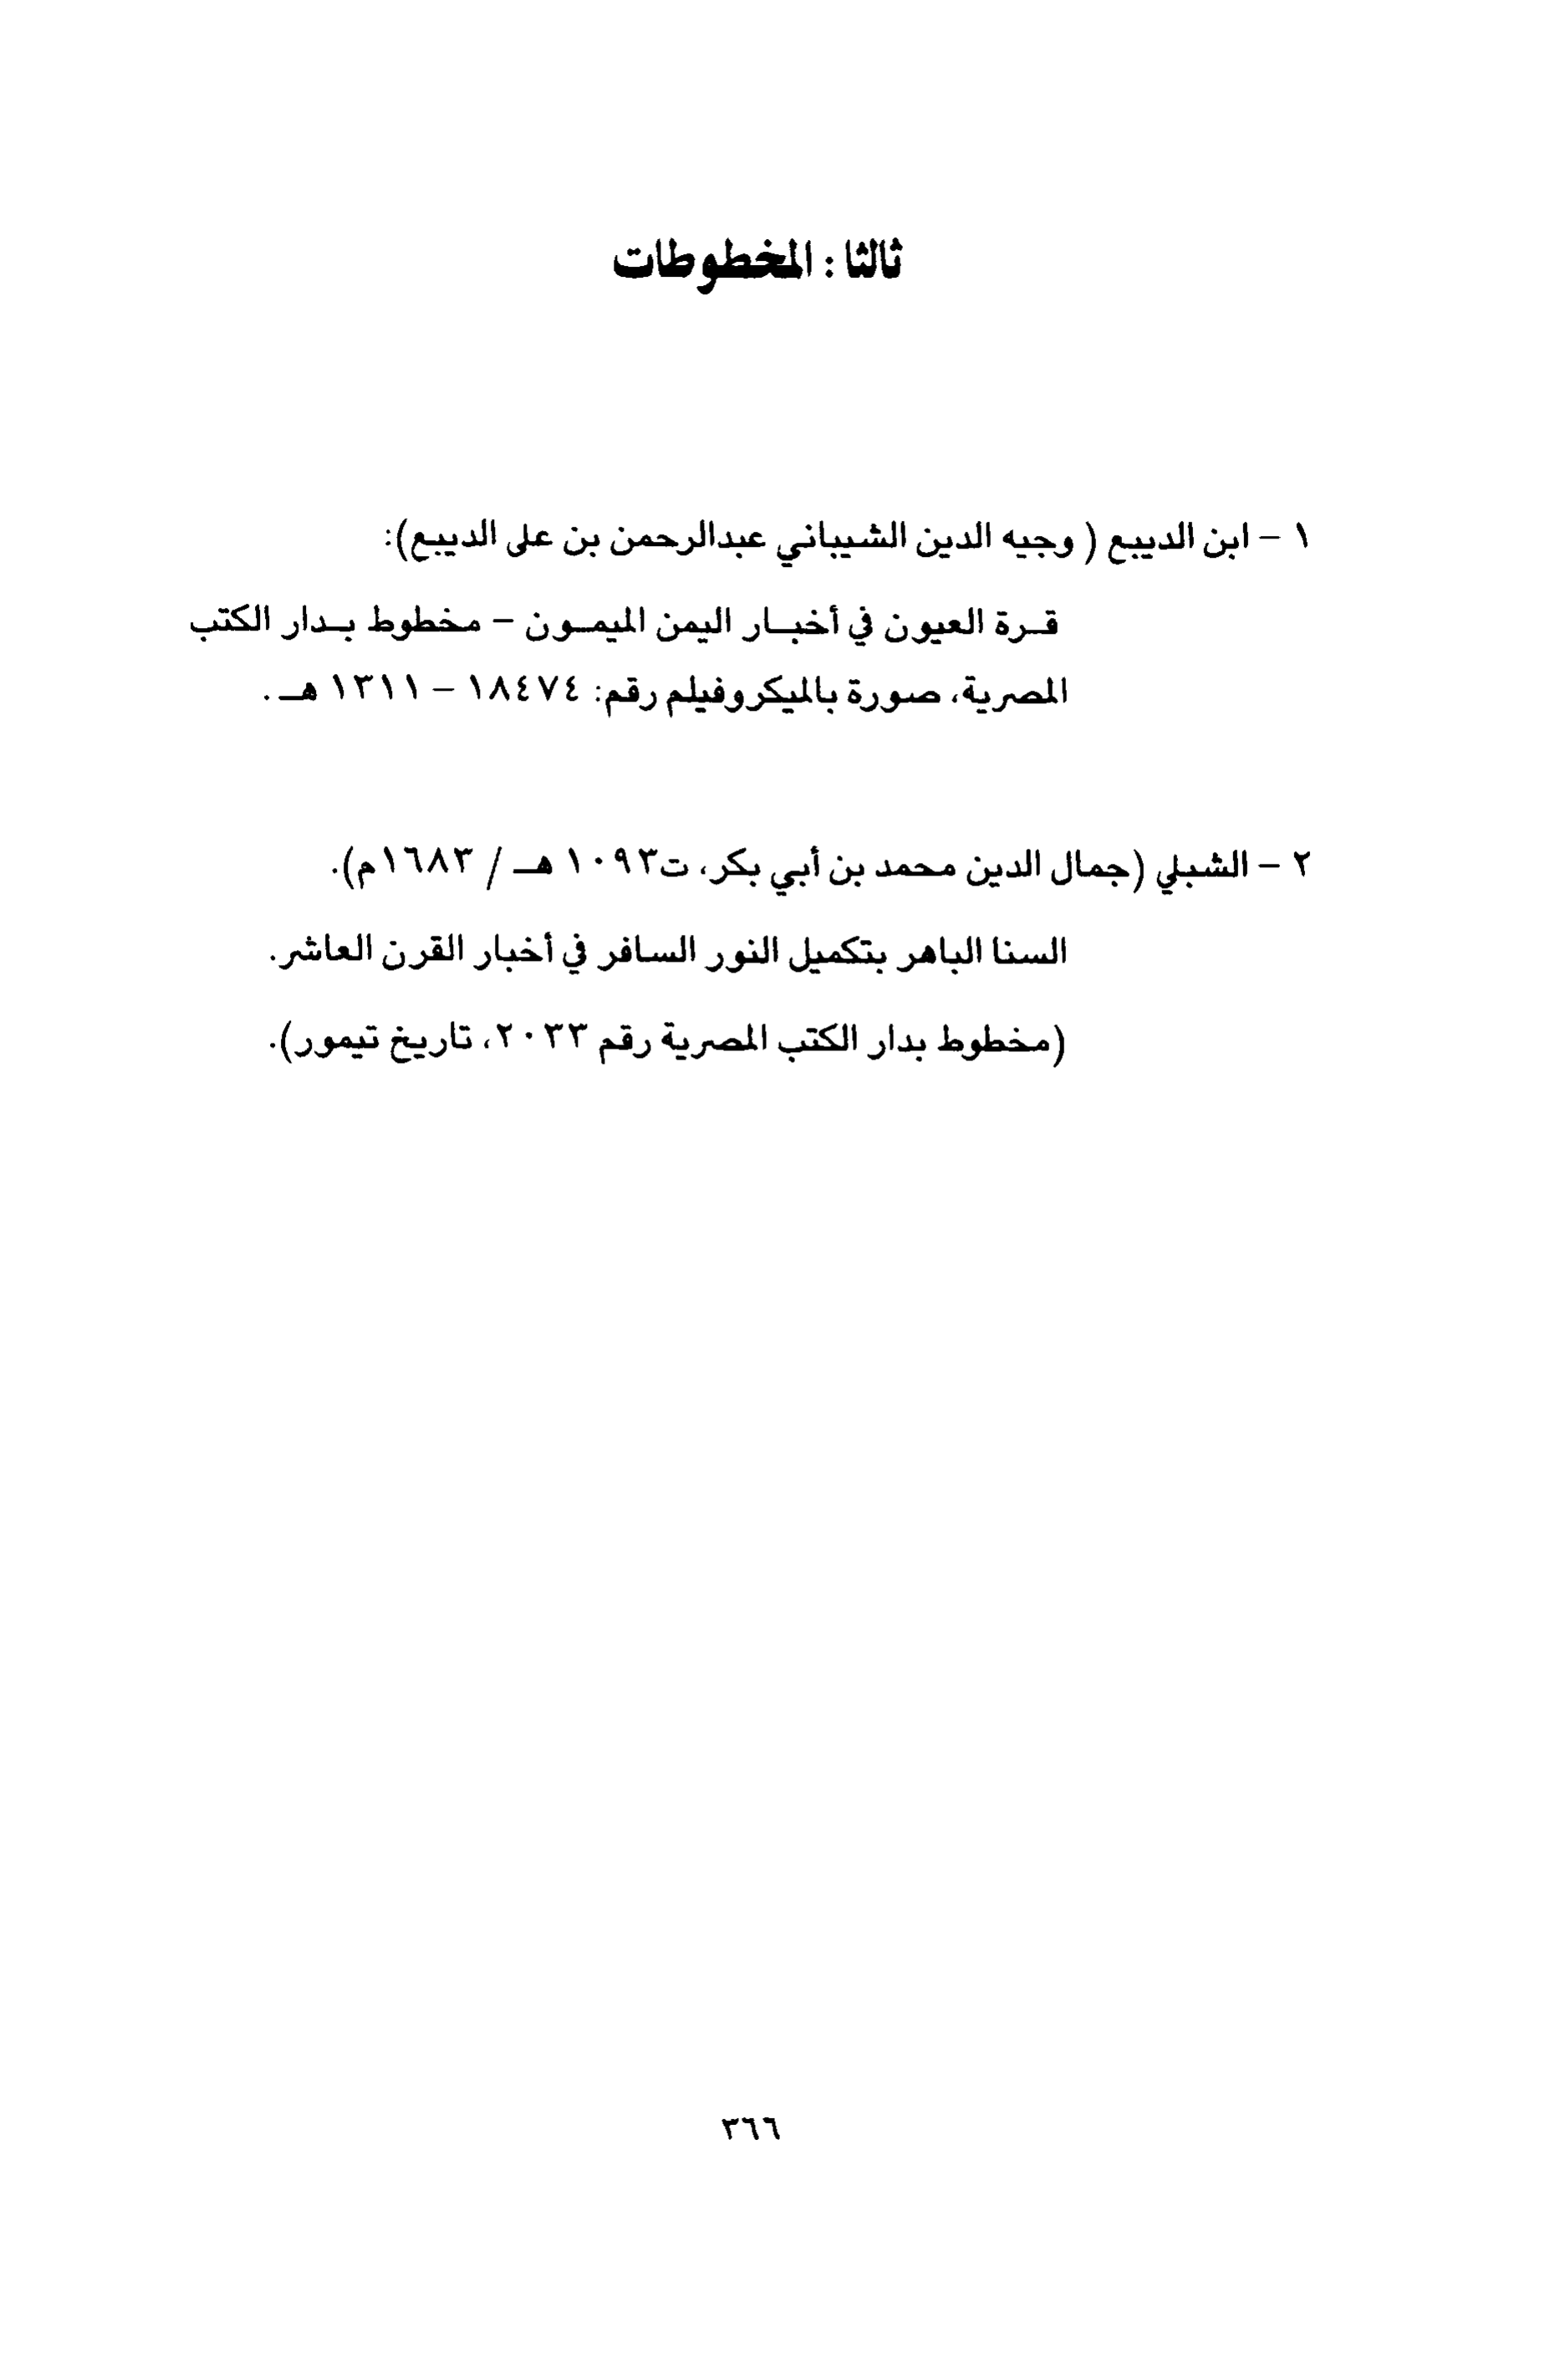 ثالثا : المخطوطات
١ – ابن الديبع ( وجيه الدين الشيباني عبدالرحمن بن على الديبع):
قرة العيون في أخبار اليمن الميمون – مخطوط بدار الكتب
المصرية، صورة بالميكروفيلم رقم: ١٨٤٧٤ – ١٣١١ هـ .
٢ – الشبلي (جمال الدين محمد بن أبي بكر، ت١٠٩٣ هـ / ١٦٨٣م).
السنا الباهر بتكميل النور السافر في أخبار القرن العاشر.
(مخطوط بدار الكتب المصرية رقم ٢٠٣٣، تاريخ تيمور).
٣٦٦